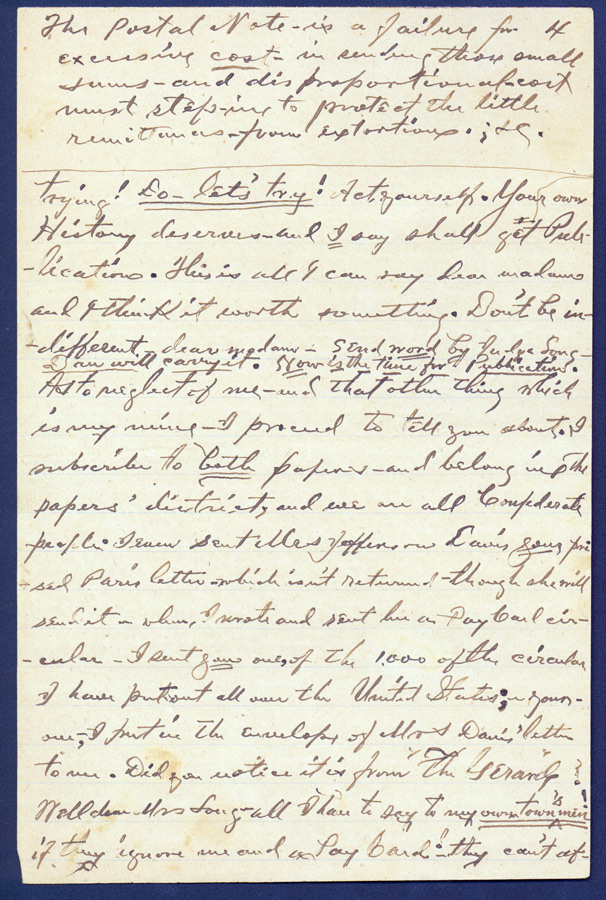 The Postal Note - is a failure for 4
excessive cost - in sending those small
sums - and disproportional cost
must step in to protect the little
remittances - from extortions. ; &c.
trying! Do - let's try! Act yourself. Your own
History deserves - and I say shall get Pub-
-lication. This is all I can say dear madam
and I think it worth something. Don't be in-
-different, dear madam - send word by Judge Long -
Dan will carry it. Now is the time for Publication.
As to neglect of me - and that other thing which
is my mine - I proceed to tell you about. I
subscribe to both papers - and belong in the
papers' district, and we are all Confederate
people. I even sent Mrs Jefferson Davis your pri
sed Paris letter - which isn't returned - though she will
send it - when, I wrote and sent her a Pay Card cir-
-cular - I sent you one, of the 1,000 of the circular
I have put out all over the United States; in your
one, I put in the envelope of Mrs Davis' letter
to me. Did you notice it is from "The Gerard"?
Well dear Mrs Long - all I have to say to my own town's men!
if they ignore me and a Pay Card - they can't af-